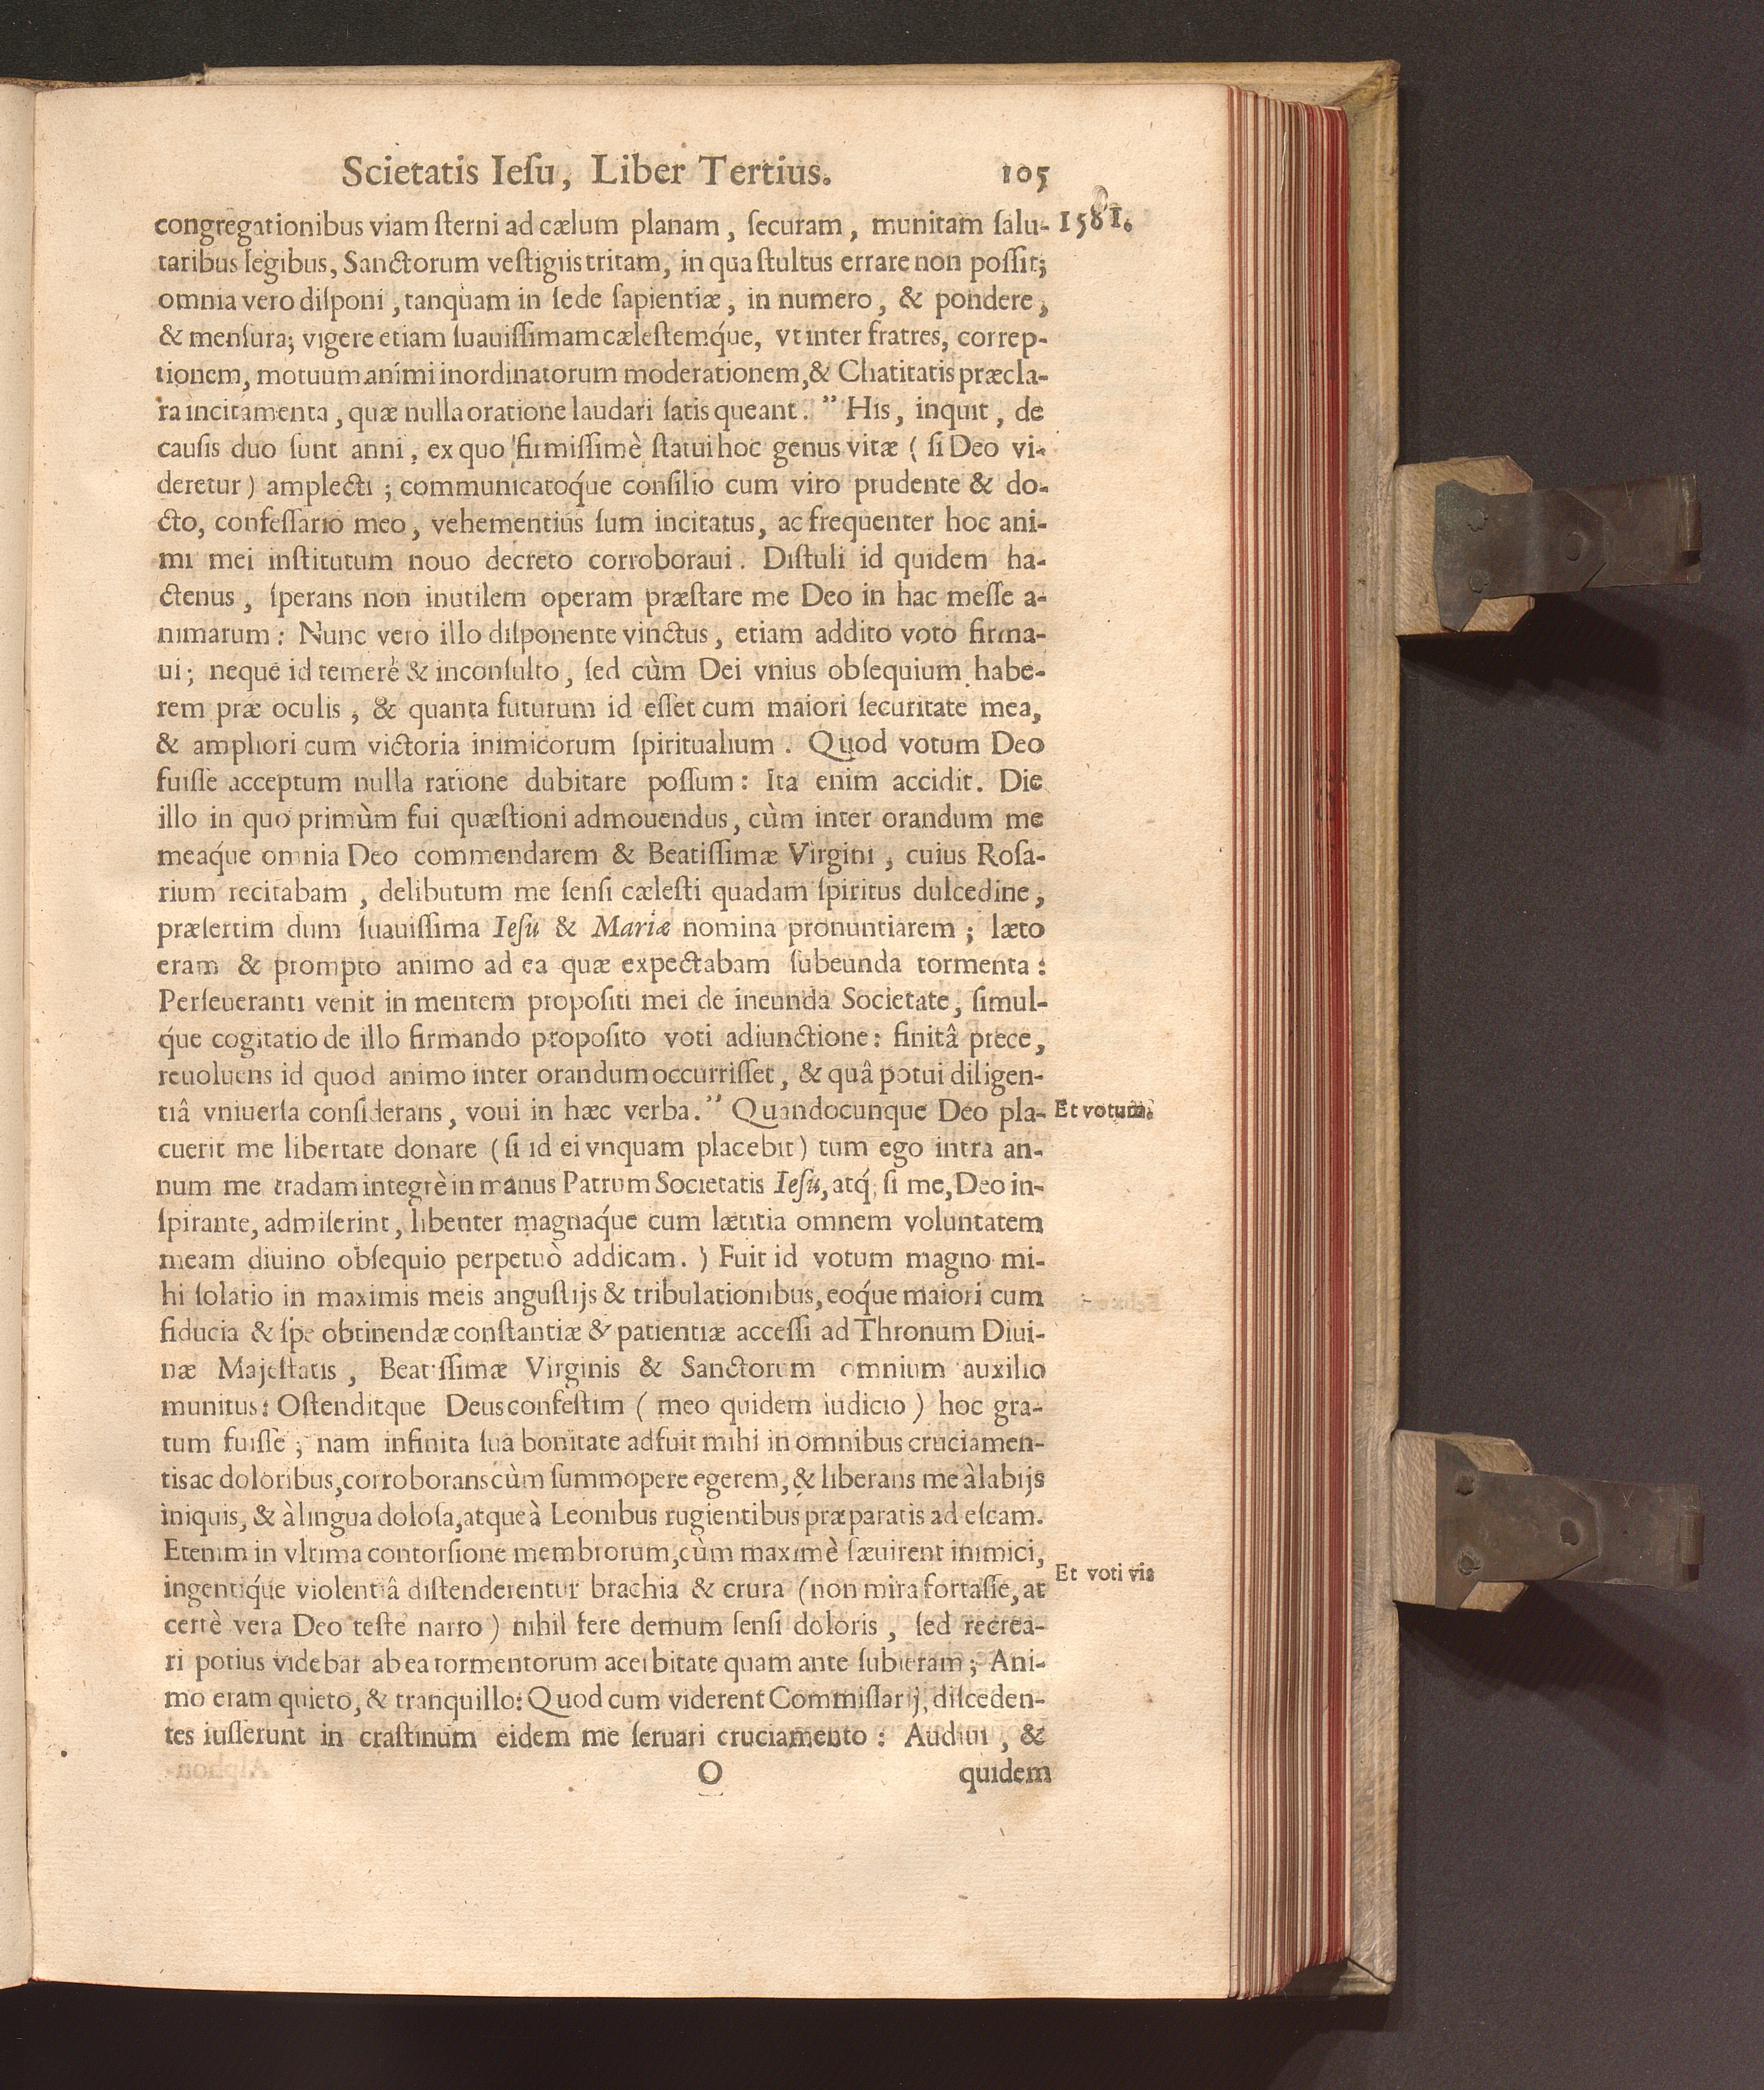 Scietatis Ieſu, Liber Tertius. 105
congregationibus viam ſterni ad cælum planam, ſecuram, munitam ſalu- 1581.
taribus legibus, Sanctorum veſtigiis tritam, in qua ſtultus errare non poſſit;
omnia vero diſponi, tanquam in ſede ſapientiæ, in numero, & pondere,
& menſura; vigere etiam ſuauiſſimam cæleſtemq́ue, vt inter fratres, correp-
tionem, motuum animi inordinatorum moderationem, & Chatitatis præcla-
ra incitamenta, quæ nulla oratione laudari ſatis queant. ” His, inquit, de
cauſis duo ſunt anni, ex quo firmiſſimè ſtatui hoc genus vitæ (ſi Deo vi-
deretur) amplecti; communicatoq́ue conſilio cum viro prudente & do-
cto, confeſſario meo, vehementius ſum incitatus, ac frequenter hoc ani-
mi mei inſtitutum nouo decreto corroboraui. Diſtuli id quidem ha-
ctenus, ſperans non inutilem operam præſtare me Deo in hac meſſe a-
nimarum: Nunc vero illo diſponente vinctus, etiam addito voto firma-
ui; neque id temerè & inconſulto, ſed cùm Dei vnius obſequium habe-
rem præ oculis, & quanta futurum id eſſet cum maiori ſecuritate mea,
& ampliori cum victoria inimicorum ſpiritualium. Quod votum Deo
fuiſſe acceptum nulla ratione dubitare poſſum: Ita enim accidit. Die
illo in quo primùm fui quæſtioni admouendus, cùm inter orandum me
meaq́ue omnia Deo commendarem & Beatiſſimæ Virgini, cuius Roſa-
rium recitabam, delibutum me ſenſi cæleſti quadam ſpiritus dulcedine,
præſertim dum ſuauiſſima Ieſu & Mariæ nomina pronuntiarem; læto
eram & prompto animo ad ea quæ expectabam ſubeunda tormenta:
Perſeueranti venit in mentem propoſiti mei de ineunda Societate, ſimul-
q́ue cogitatio de illo firmando propoſito voti adiunctione: finitâ prece,
reuoluens id quod animo inter orandum occurriſſet, & quâ potui diligen-
tiâ vniuerſa conſiderans, voui in hæc verba. ” Quandocunque Deo pla- Et votum.
cuerit me libertate donare (ſi id ei vnquam placebit) tum ego intra an-
num me tradam integrè in manus Patrum Societatis Ieſu, atq́; ſi me, Deo in-
ſpirante, admiſerint, libenter magnaq́ue cum lætitia omnem voluntatem
meam diuino obſequio perpetuò addicam. ) Fuit id votum magno mi-
hi ſolatio in maximis meis anguſtijs & tribulationibus, eoq́ue maiori cum
fiducia & ſpe obtinendæ conſtantiæ & patientiæ acceſſi ad Thronum Diui-
næ Majeſtatis, Beatiſſimæ Virginis & Sanctorum omnium auxilio
munitus: Oſtenditque Deus confeſtim (meo quidem iudicio) hoc gra-
tum fuiſſe; nam infinita ſua bonitate adfuit mihi in omnibus cruciamen-
tis ac doloribus, corroborans cùm ſummopere egerem, & liberans me à labijs
iniquis, & à lingua doloſa, atque à Leonibus rugientibus præparatis ad eſcam.
Etenim in vltima contorſione membrorum, cùm maximè ſæuirent inimici,
ingentiq́ue violentiâ diſtenderentur brachia & crura (non mira fortaſſe, at Et voti vis
certè vera Deo teſte narro) nihil fere demum ſenſi doloris, ſed recrea-
ri potius videbar ab ea tormentorum acerbitate quam ante ſubieram; Ani-
mo eram quieto, & tranquillo: Quod cum viderent Commiſſarij, diſceden-
tes iuſſerunt in craſtinum eidem me ſeruari cruciamento: Audiui, &
O quidem